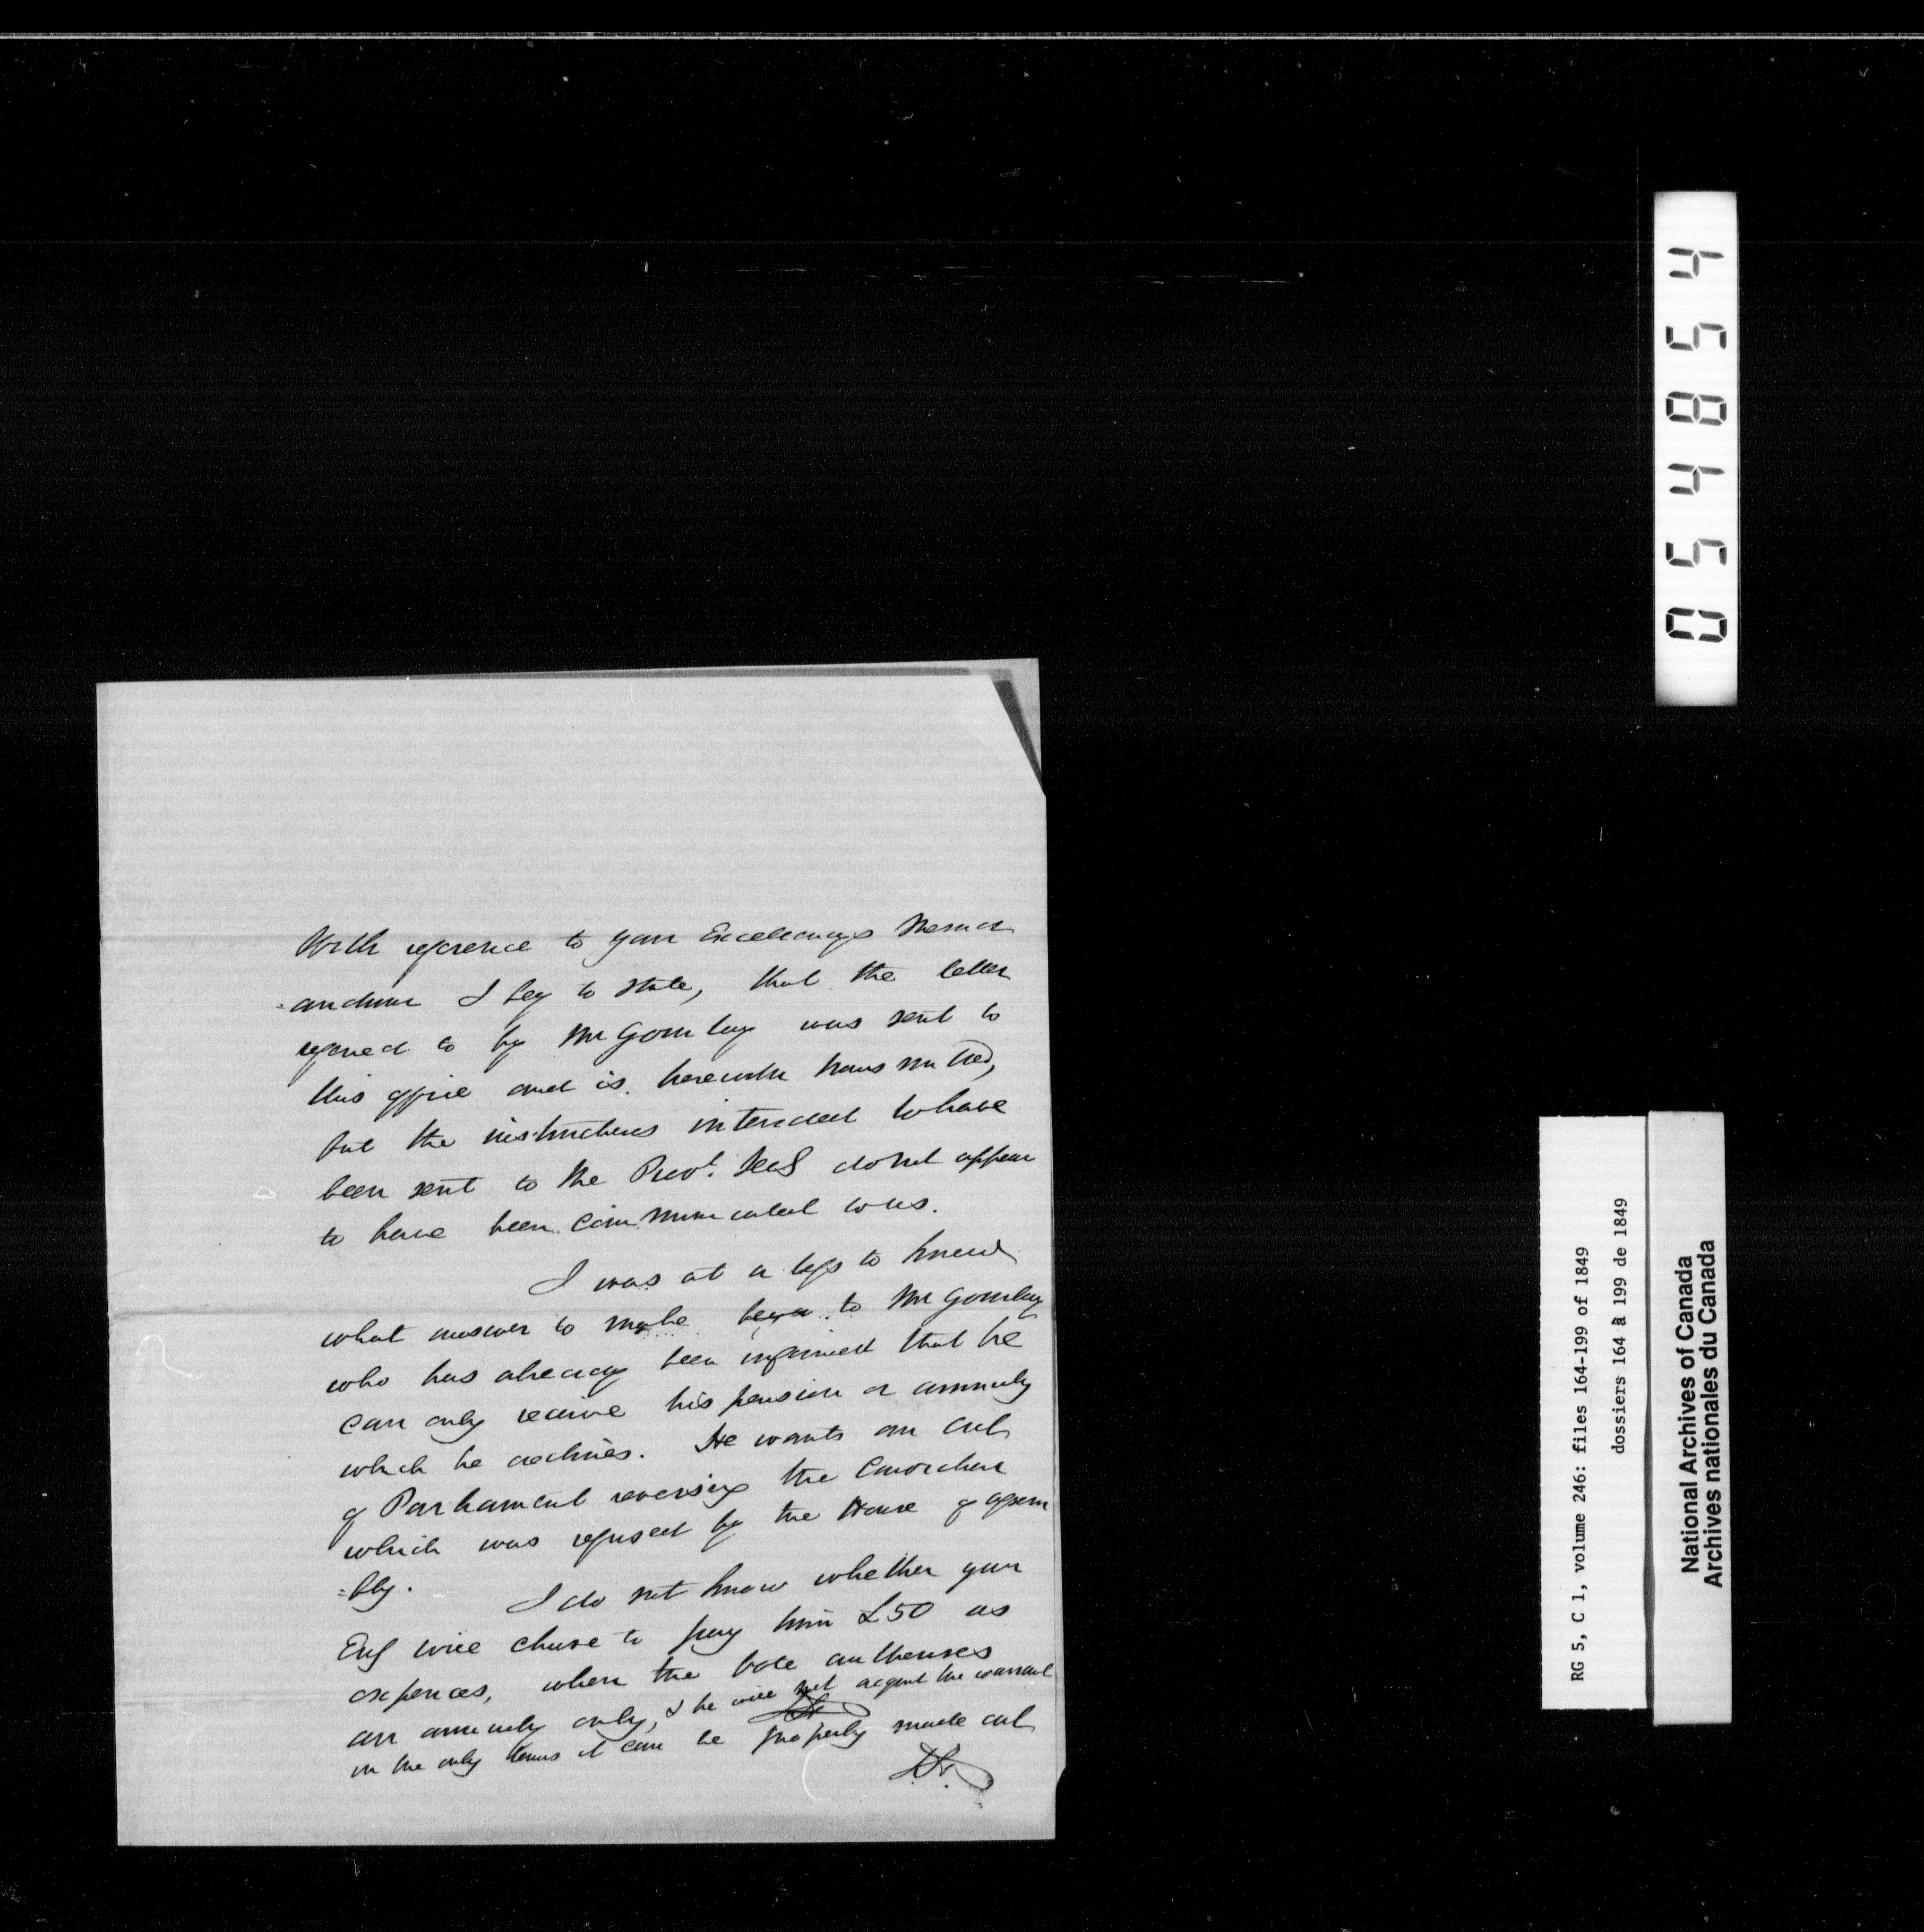 With reference to your Excellency's Memor
=andum I beg to state, that the letter
referred to by Mr Gourlay was sent to
this office and is herewith transmitted,
but the instructions intended to have
been sent to the Provl. Secy do not appear
to have been communicated to us.
I was at a loss to know
what answer to make to Mr Gourlay
who has already been informed that he
can only receive his pension or annuity
which he declines. He wants an Act
of Parliament reversing the
which was refused by the House of Assem
=bly.
I do not know whether your
Exy will chuse to pay him £50 as
expences, when the vote authorises
an annuity only, & he will not accept the warrant
in the only terms it can be properly made out
054854
RG 5, C 1, volume 246: files 164-199 of 1849
dossiers 164 à 199 de 1849
National Archives of Canada
Archives nationales du Canada